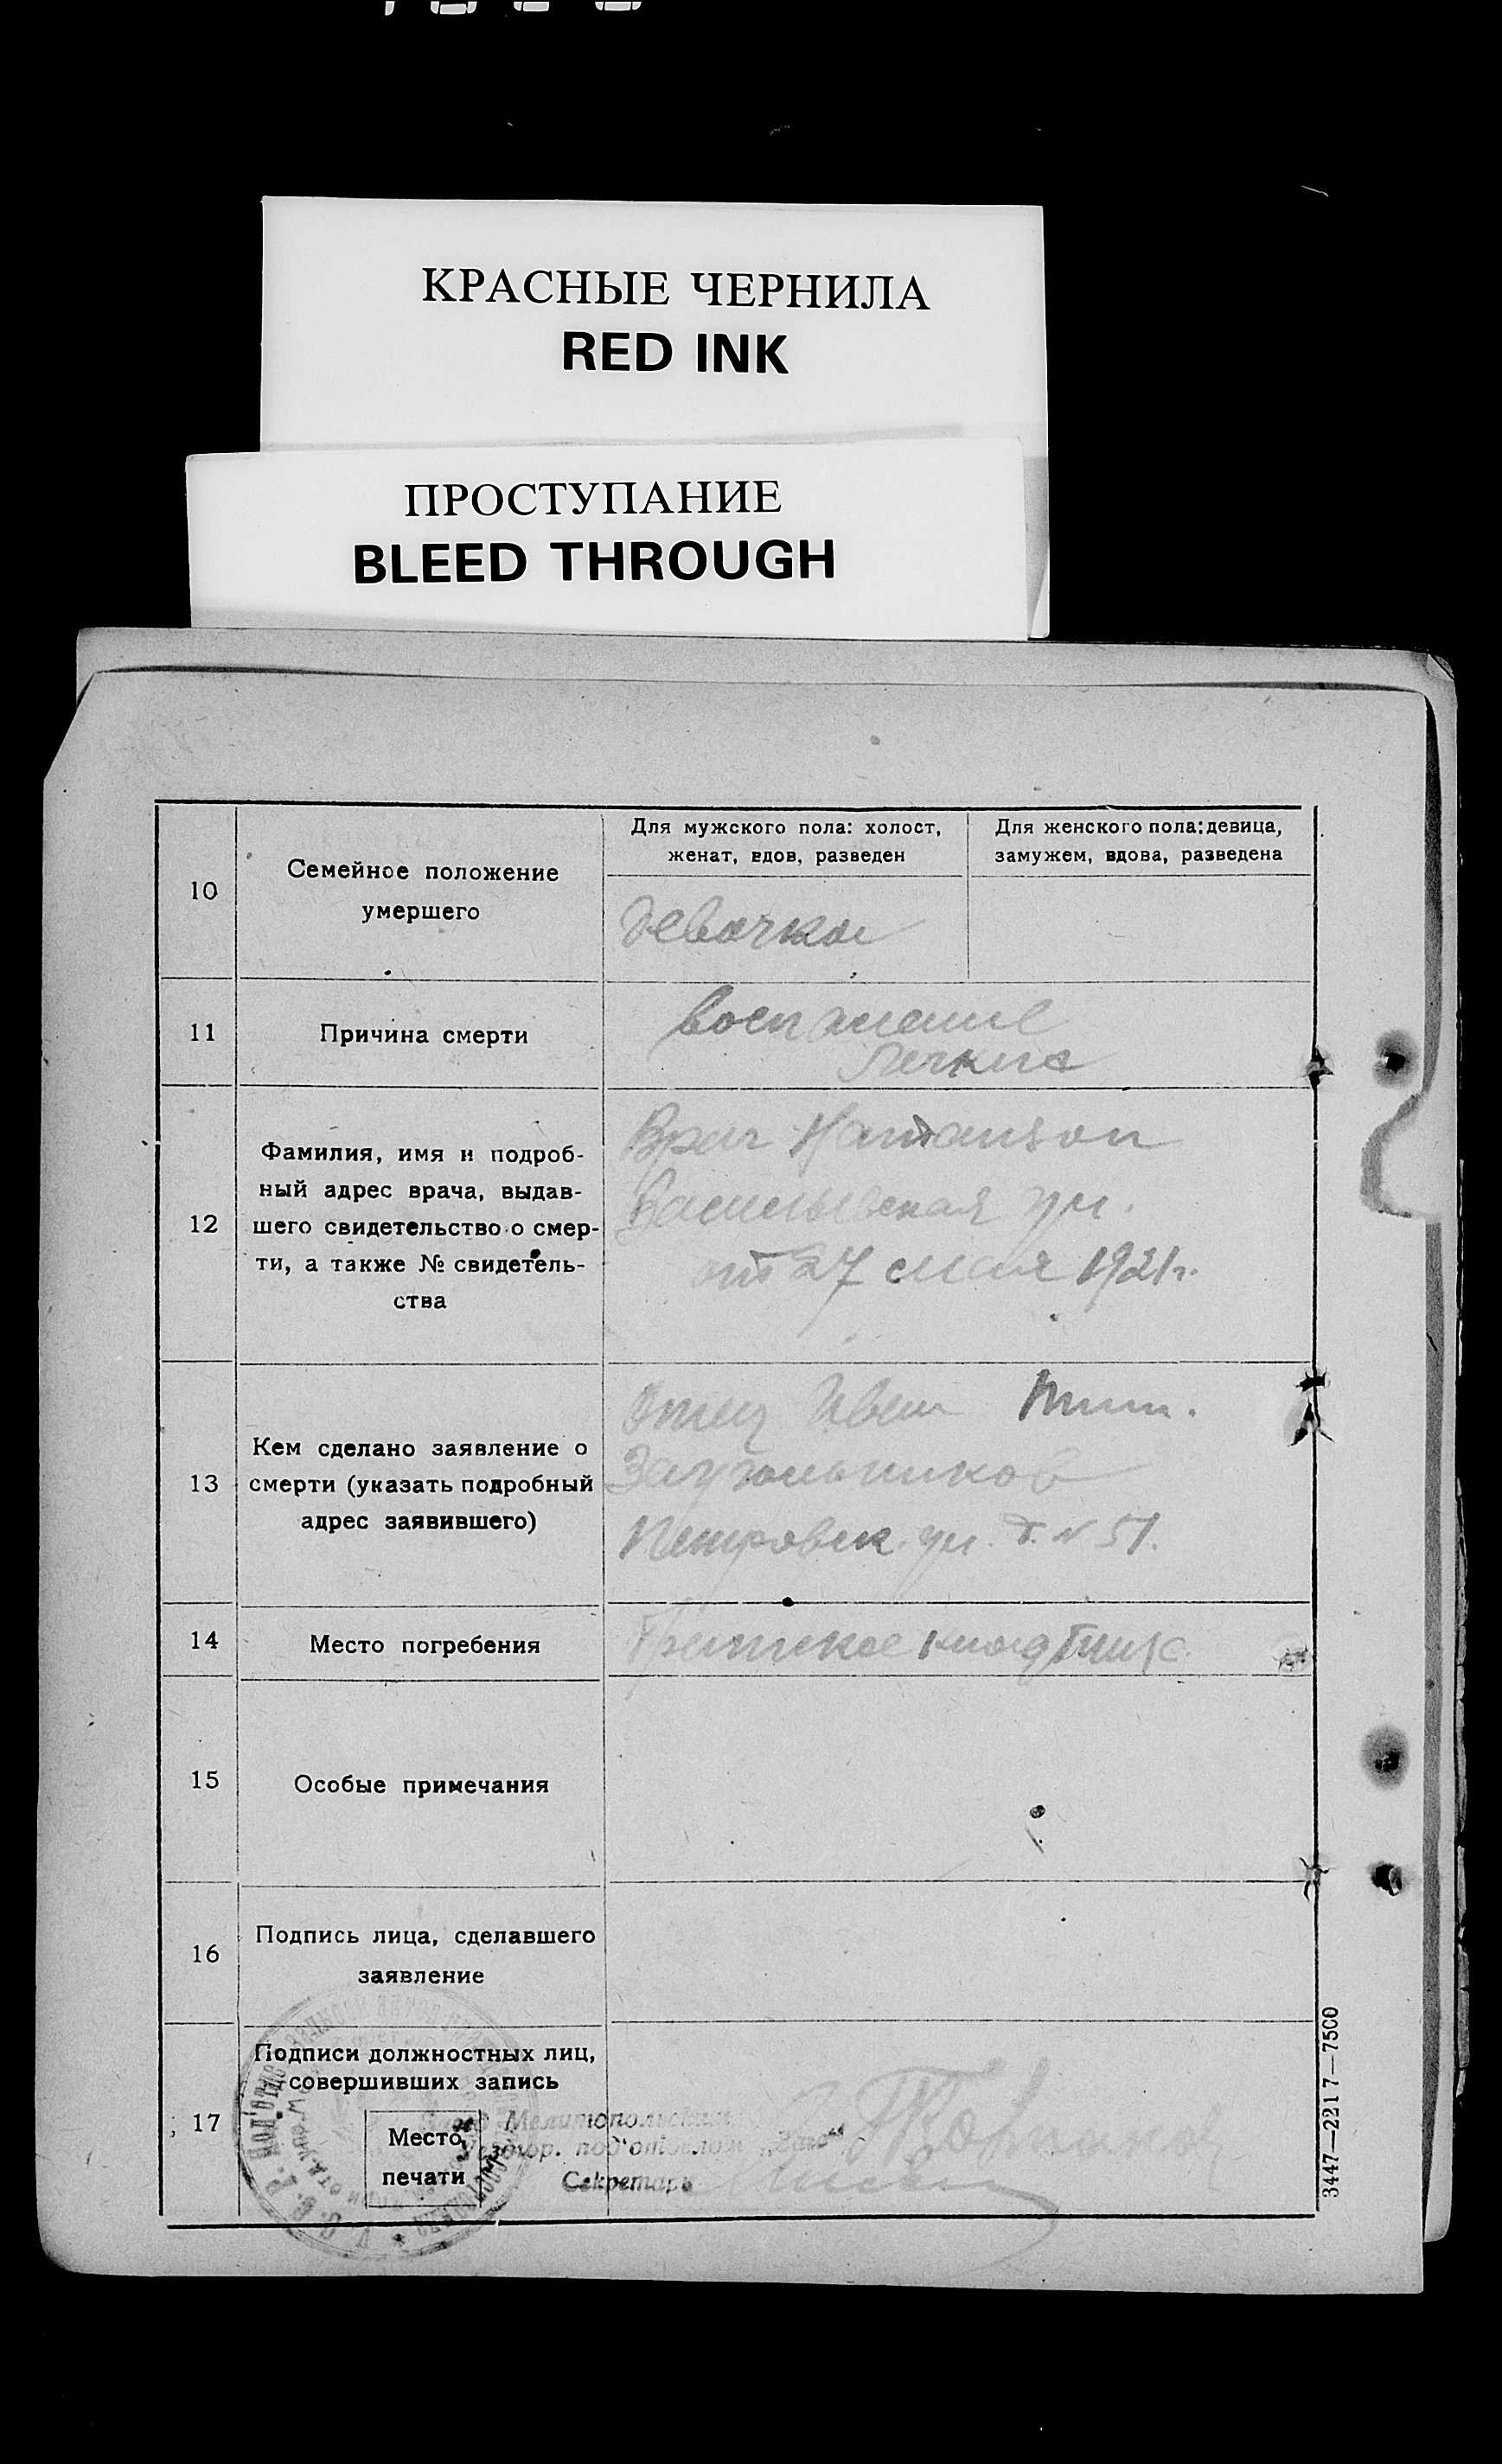 КРАСНЫЕ ЧЕРНИЛА
RED INK
ПРОСТУПАНИЕ
BLEED THROUGH
10
Семейное положение
умершего
Для мужского пола: холост,
женат, вдов, разведен
Для женского пола: девица,
замужем, вдова, разведена
девочка
11
Причина смерти
воспаление
легких
12
Фамилия, имя и подроб-
ный адрес врача, выдав-
шего свидетельство о смер-
ти, а также № свидетель-
ства
Врач Натанзон
Васильевская ул.
от 27 мая 1921 г.
13
Кем сделано заявление о
смерти (указать подробный
адрес заявившего)
Отец Иван
Петровск. ул. д. № 51.
14
Место погребения
кладбище
15
Особые примечания
16
Подпись лица, сделавшего
заявление
17
Подписи должностных лиц,
совершивших запись
Место
печати
Мелитопольским
под'отделом „Загс“
Секретарь
3447—2217—7500